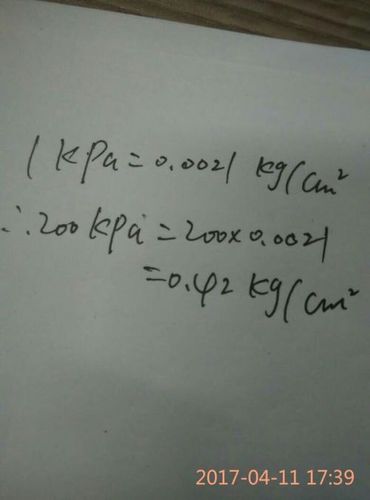 1KPa=0.0021 kg/cm²
∴200kpa=200x0.0021
=0.42kg/cm²
2017-04-11 17:39